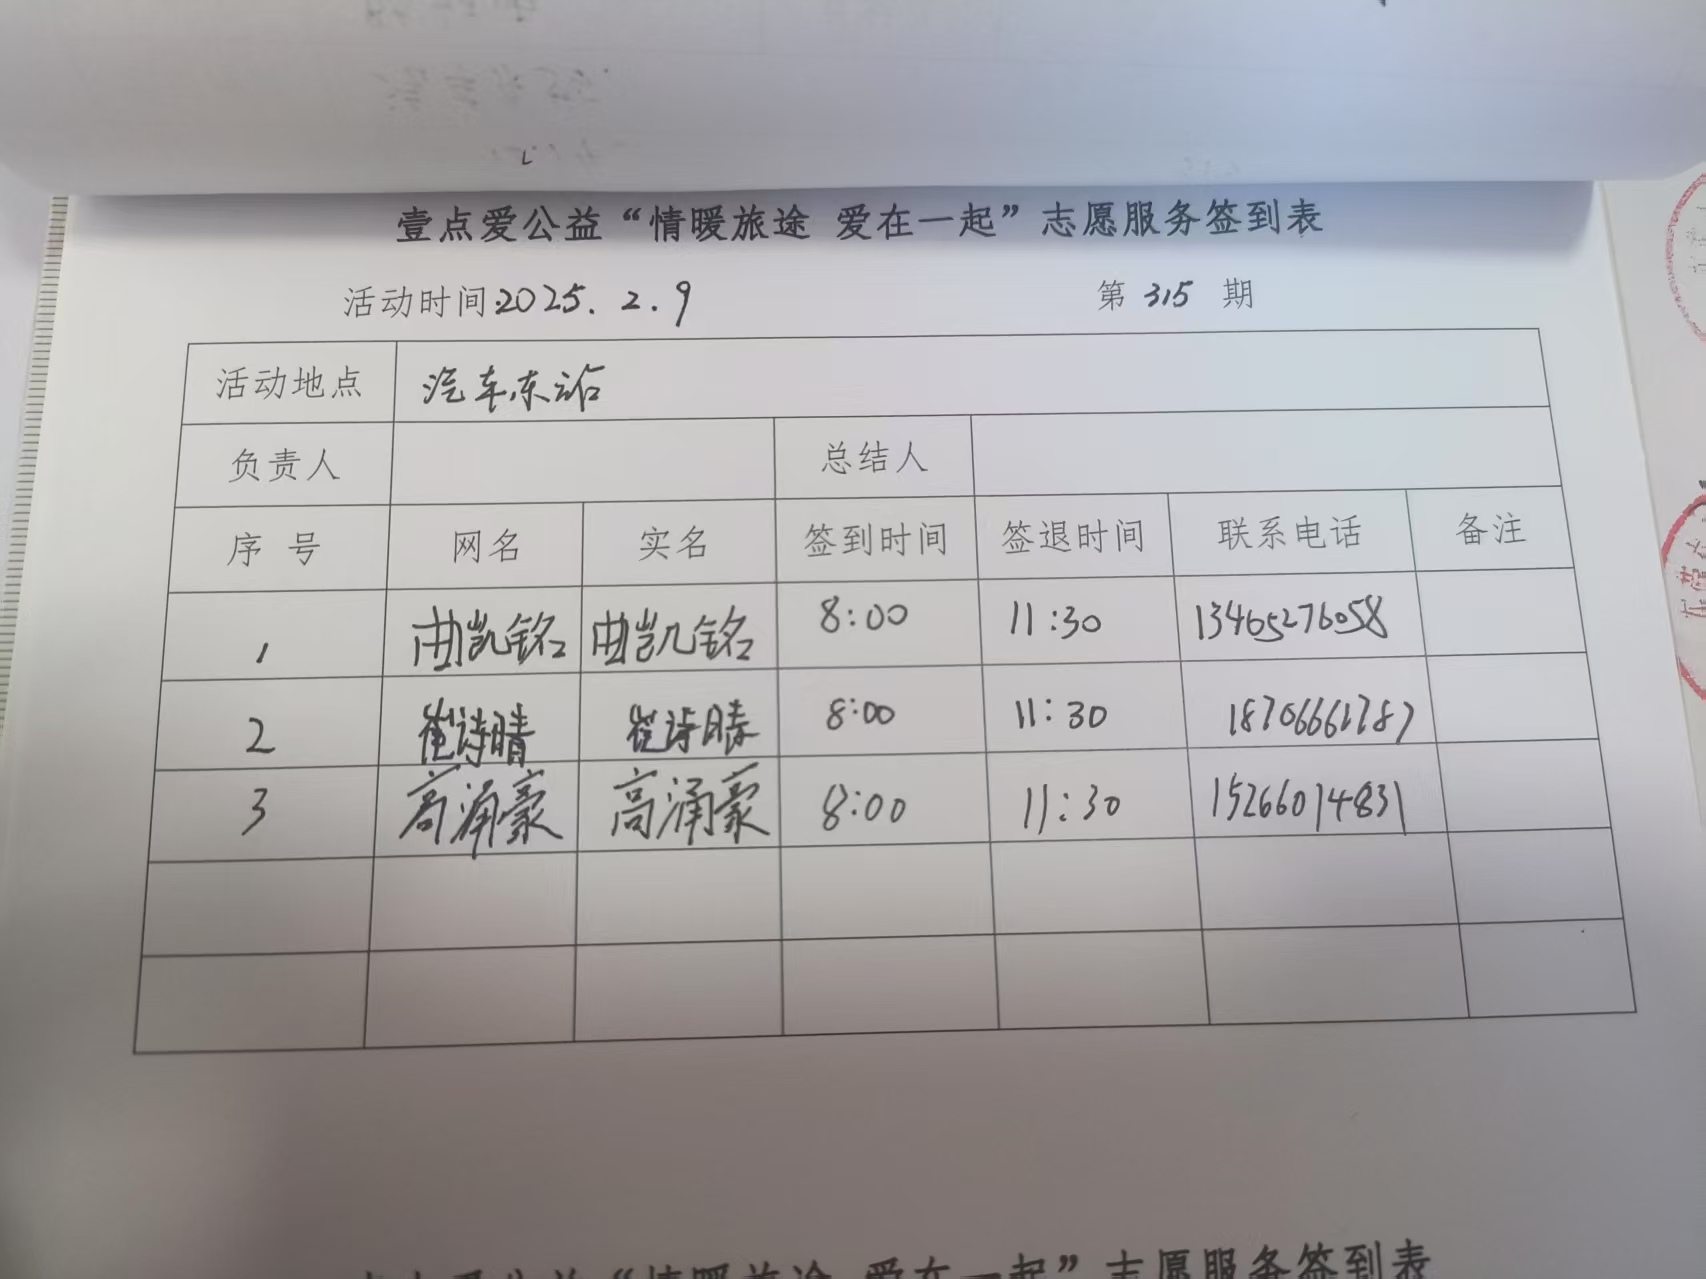 壹点爱公益“情暖旅途 爱在一起”志愿服务签到表
活动时间:2025.2.9 第 315 期
活动地点 汽车东站
负责人 总结人
序号 网名 实名 签到时间 签退时间 联系电话 备注
1 曲凯铭 曲凯铭 8:00 11:30 13465276058
2 崔诗晴 崔诗晴 8:00 11:30 18706661787
3 高涌豪 高涌豪 8:00 11:30 15266014831
“情暖旅途 爱在一起”志愿服务签到表